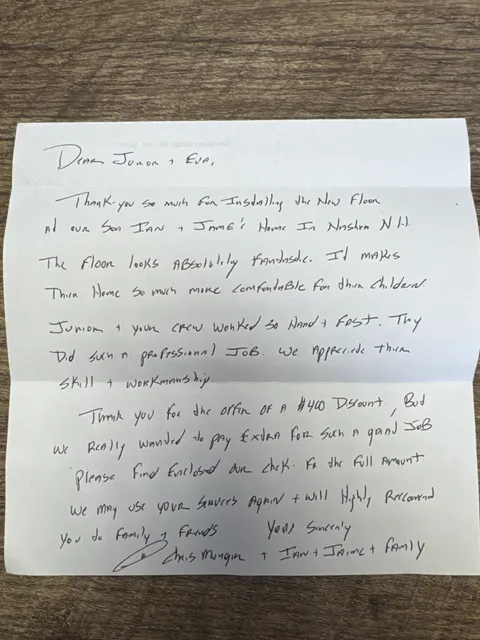 Dear Junior + Eva,
Thank-you so much for Installing the New Floor
at our son Ian + Jame's Home In Nashua N.H.
The Floor looks Absolutely Fantastic. It makes
Their Home so much more comfortable for their children.
Junior + your crew worked so Hard + Fast. They
Did such a professional Job. We Appreciate their
skill + workmanship
Thank you for the offer of a $400 Discount, But
we Really wanted to pay Extra for such a good Job
Please Find Enclosed our check. For the Full Amount
We may use your services Again + will Highly Recommend
you to Family + Friends
Yours Sincerely
Chris + Ian + Jaime + Family